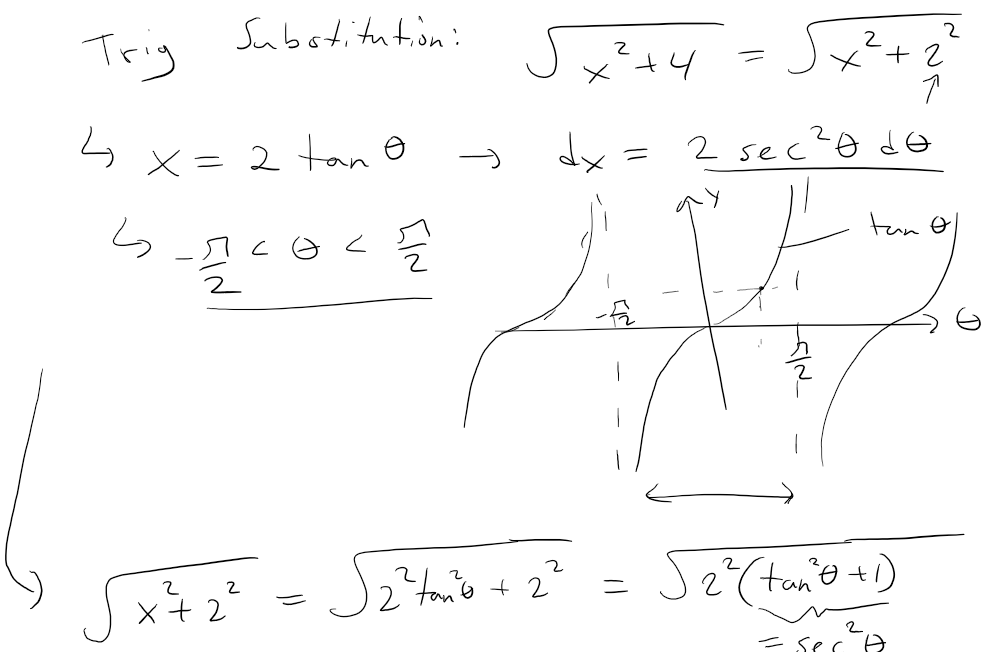 Trig Substitution: √(x²+4) = √(x²+2²)
↑
↳ x = 2 tan θ → dx = 2 sec²θ dθ
↳ -π/2 < θ < π/2
y
tan θ
-π/2
θ
π/2
√(x²+2²) = √(2²tan²θ + 2²) = √(2²(tan²θ +1))
= sec²θ